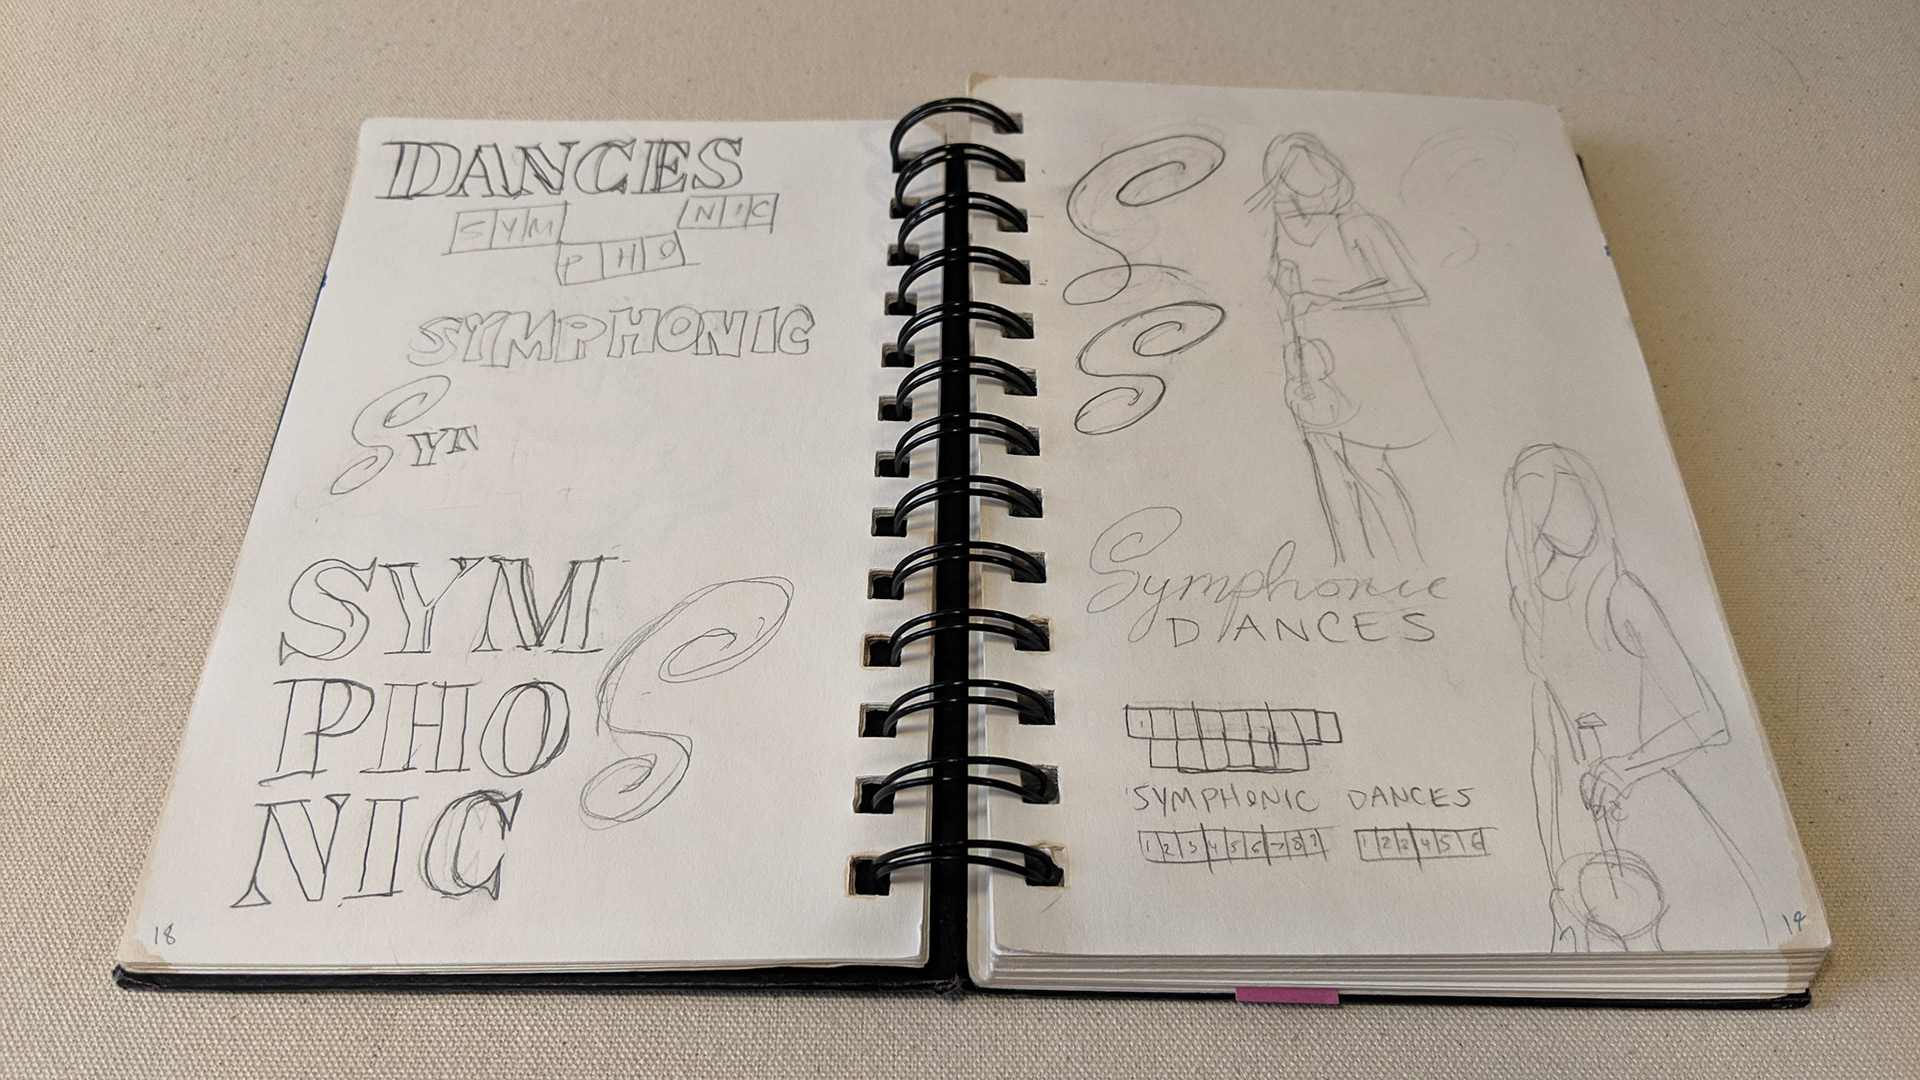 DANCES
SYM NIC
PHO
SYMPHONIC
SYM
SYM
PHO
NIC
S
18
S
S
Symphonic
DANCES
SYMPHONIC DANCES
1 2 3 4 5 6 7 8 9 1 2 3 4 5 6
19